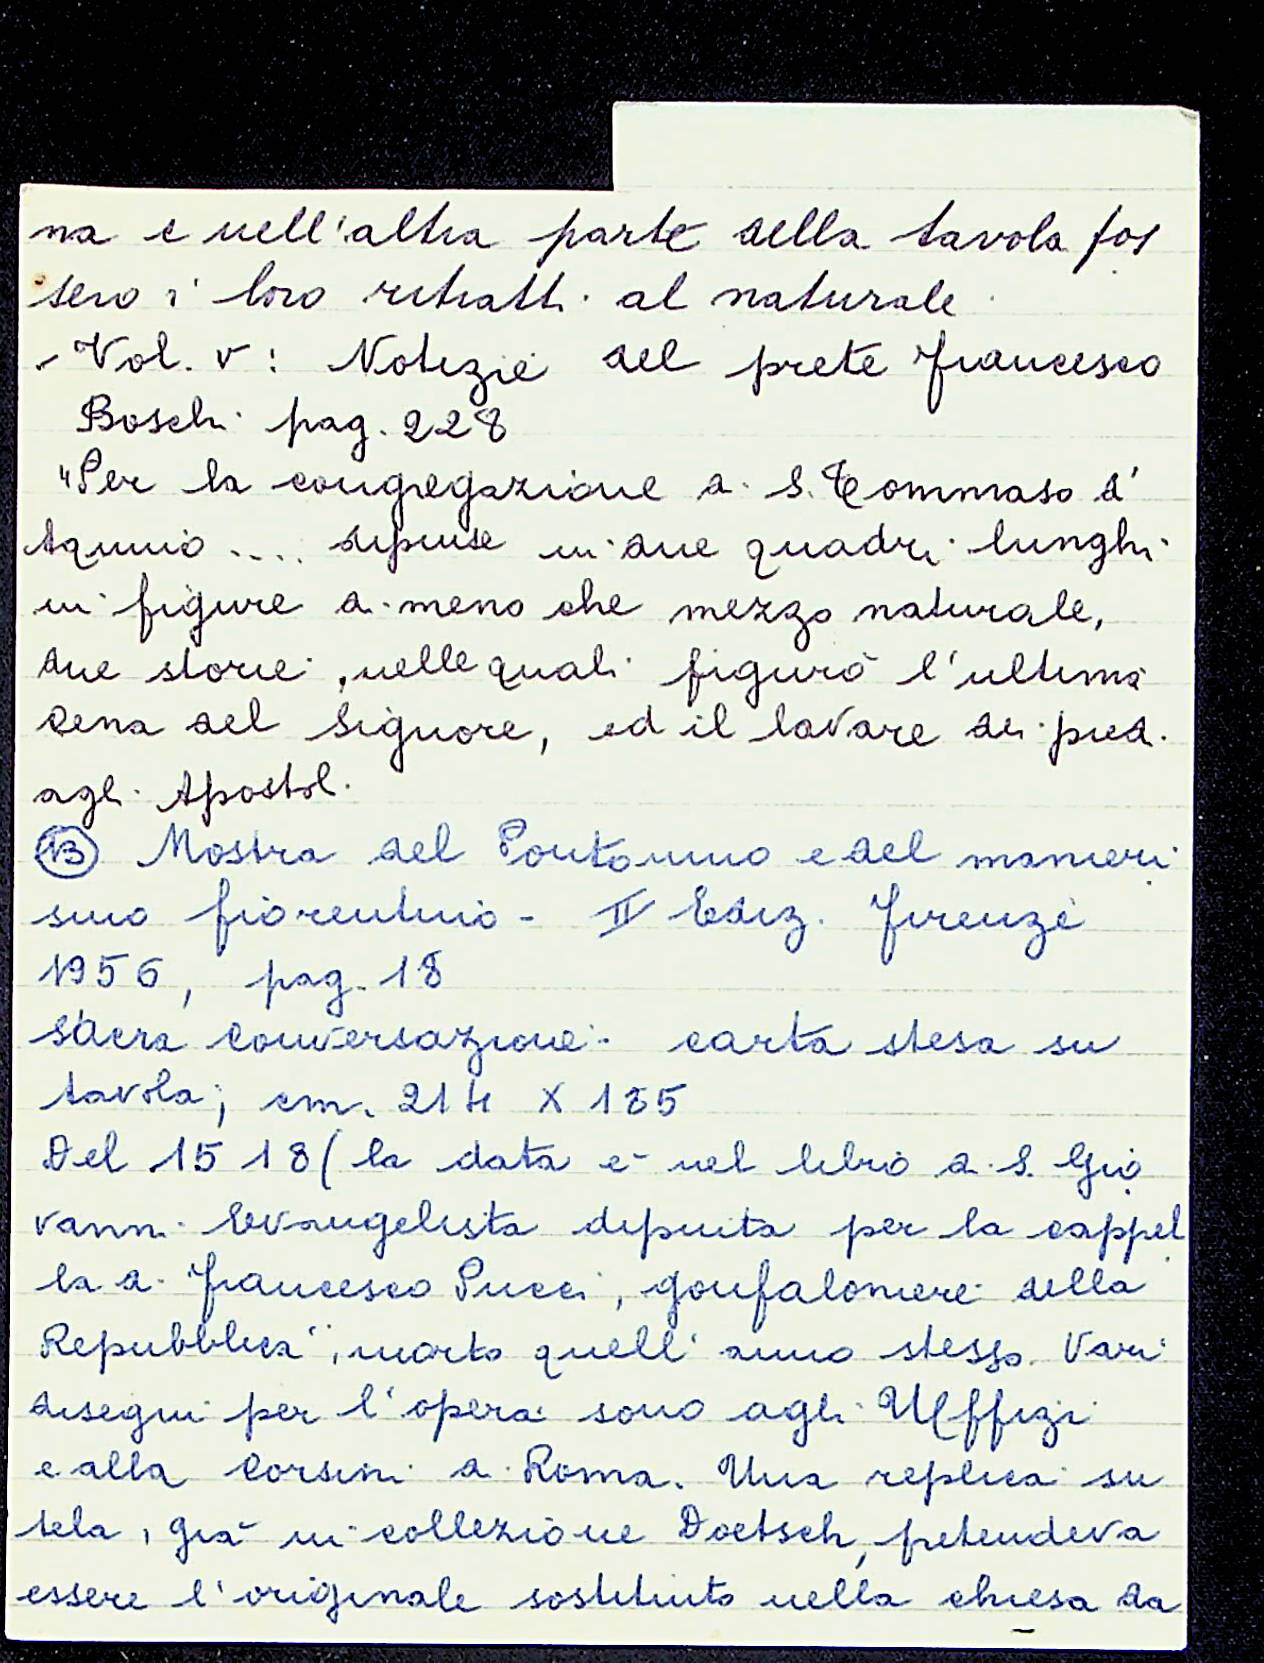 na e nell'altra parte della tavola fos
sero i loro ritratti al naturale
- Vol. V: Notizie del prete Francesco
Boschi pag. 228
"Per la congregazione di S. Tommaso d'
Aquino .... dipinse in due quadri lunghi
in figure di meno che mezzo naturale,
due storie, nelle quali figurò l'ultima
Cena del Signore, ed il lavare dei piedi
agli Apostoli
(13) Mostra del Pontormo e del manieri
smo fiorentino - II Ediz. Firenze
1956, pag. 18
Sacra Conversazione - carta stesa su
tavola; cm. 214 X 185
Del 1518 (la data è nel libro di S. Gio
vanni Evangelista dipinta per la cappel
la di Francesco Pucci, gonfaloniere della
Repubblica", morto quell'anno stesso. Vari
disegni per l'opera sono agli Uffizi
e alla Corsini di Roma. Una replica su
tela, già in collezione Doetsch, petendeva
essere l'originale sostituito nella chiesa da